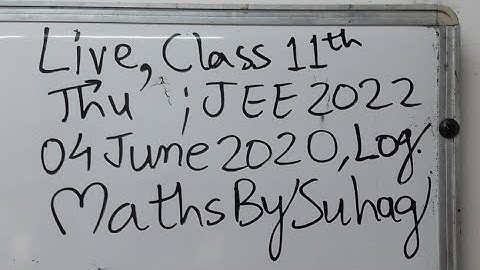 Live, Class 11th
Thu ; JEE 2022
04 June 2020, Log.
MathsBySuhag